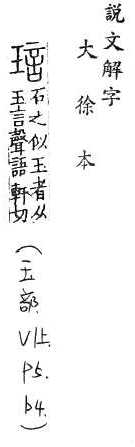 説文解字
大徐本
琂
石之似玉者从
玉言聲語軒切
(玉部. V上. P5. b4.)